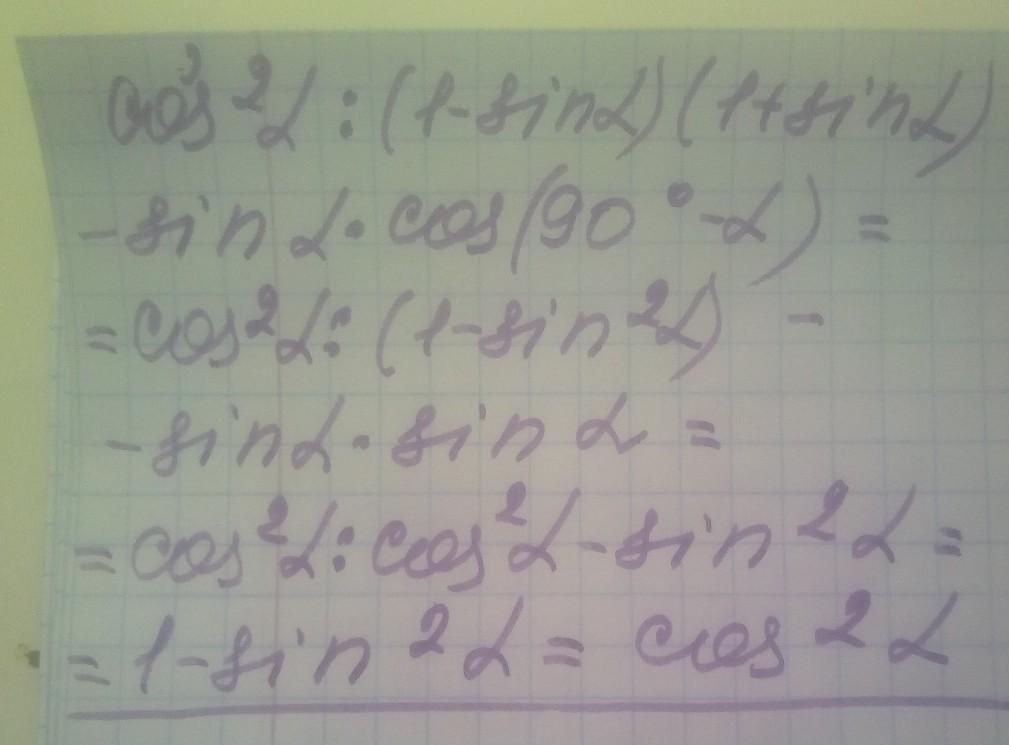 cos²α : (1-sinα)(1+sinα)
-sin α · cos(90°-α) =
= cos²α : (1-sin²α) -
-sinα · sin α =
= cos²α : cos²α - sin²α =
= 1-sin²α = cos²α